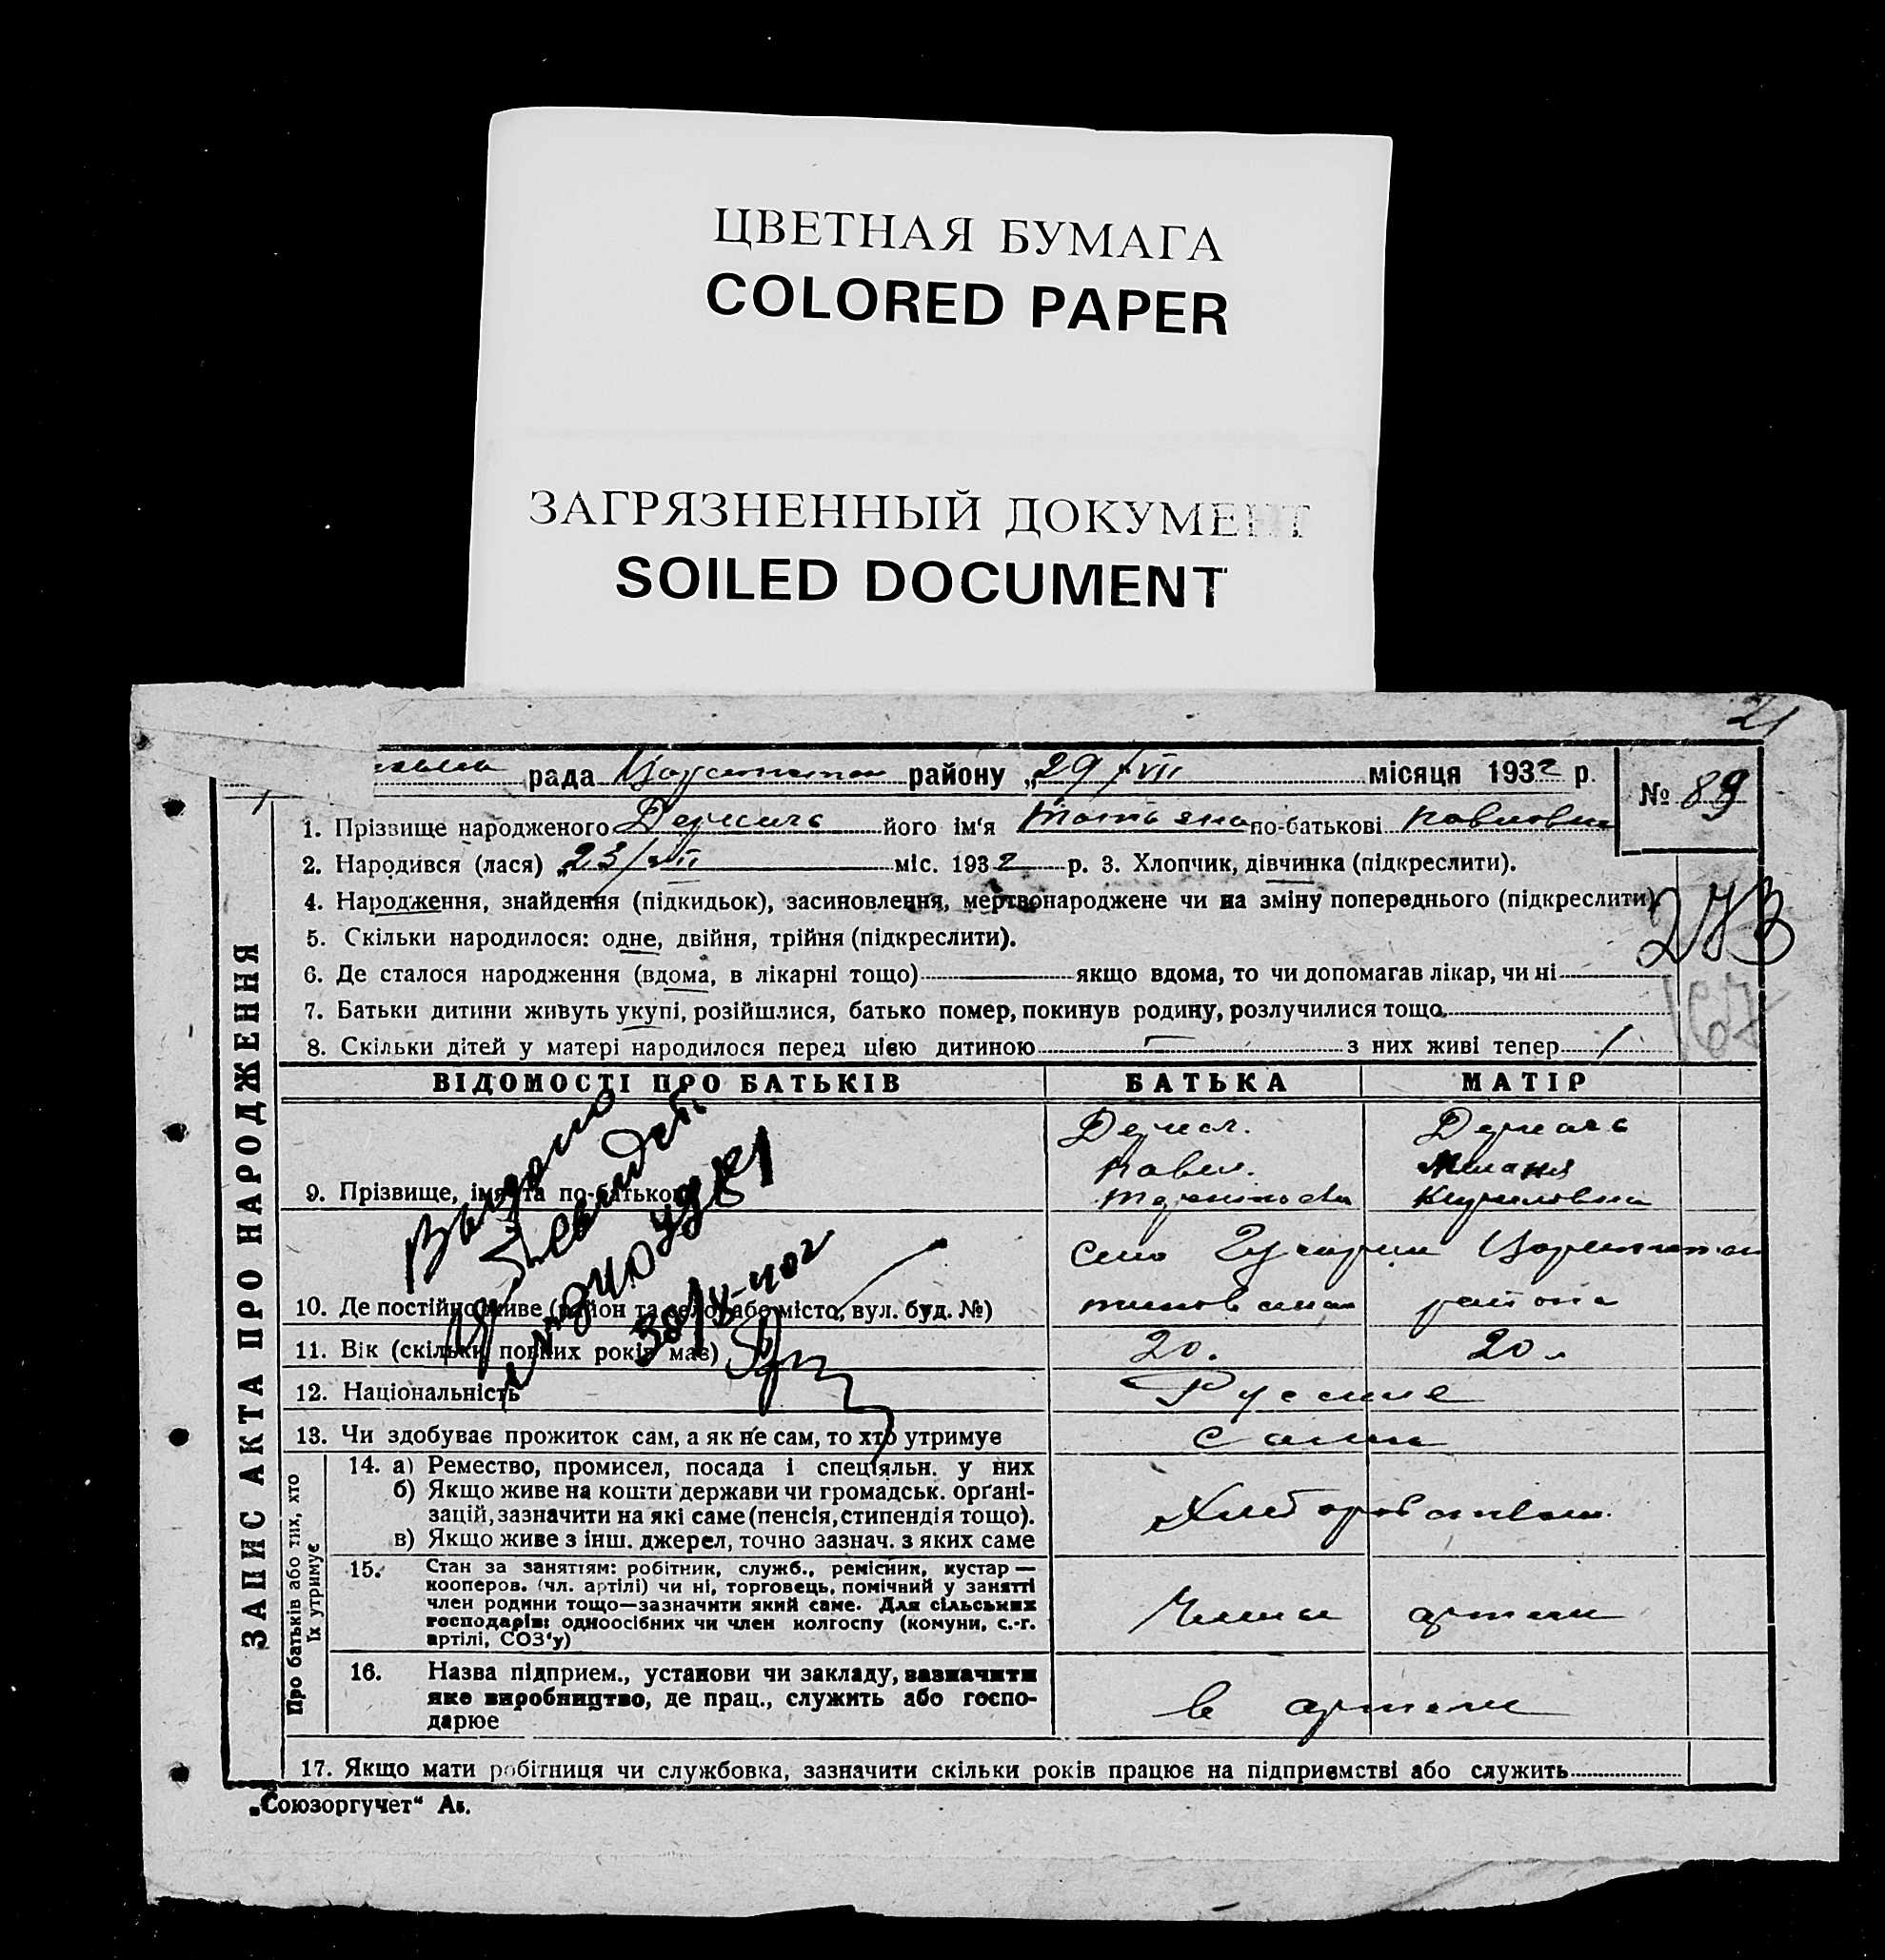 ЦВЕТНАЯ БУМАГА
COLORED PAPER
ЗАГРЯЗНЕННЫЙ ДОКУМЕНТ
SOILED DOCUMENT
21
рада району „29/VII місяця 1932 р.
№ 89
1. Прізвище народженого його ім'я Татьяна по-батькові Павловна
2. Народився (лася) „23/VII міс. 1932 р. 3. Хлопчик, дівчинка (підкреслити).
4. Народження, знайдення (підкидьок), засиновлення, мертвонароджене чи на зміну попереднього (підкреслити).
5. Скільки народилося: одне, двійня, трійня (підкреслити).
6. Де сталося народження (вдома, в лікарні тощо) якщо вдома, то чи допомагав лікар, чи ні
7. Батьки дитини живуть укупі, розійшлися, батько помер, покинув родину, розлучилися тощо
167
8. Скільки дітей у матері народилося перед цією дитиною — з них живі тепер 1
ЗАПИС АКТА ПРО НАРОДЖЕННЯ
ВІДОМОСТІ ПРО БАТЬКІВ БАТЬКА МАТІР
9. Прізвище, імя та по-батькові
Павел
Кириловна
Выдано
село
10. Де постійно живе (район та село, або місто, вул. буд. №) района
11. Вік (скільки повних років має) 20. 20.
12. Національність Руские
13. Чи здобуває прожиток сам, а як не сам, то хто утримує Сами
Про батьків або тих, хто їх утримує
14. а) Ремество, промисел, посада і спеціяльн. у них
б) Якщо живе на кошти держави чи громадськ. орґані-
зацій, зазначити на які саме (пенсія, стипендія тощо).
в) Якщо живе з інш. джерел, точно зазнач. з яких саме
15. Стан за заняттям: робітник, служб., ремісник, кустар—
кооперов. (чл. артілі) чи ні, торговець, помічний у занятті
член родини тощо—зазначити який саме. Для сільських
господарів: одноосібних чи член колгоспу (комуни, с.-г.
артілі, СОЗ'у)
Члени артели
16. Назва підприєм., установи чи закладу, зазначити
яке виробництво, де прац., служить або госпо-
дарює
в артели
17. Якщо мати робітниця чи службовка, зазначити скільки років працює на підприємстві або служить
„Союзоргучет"